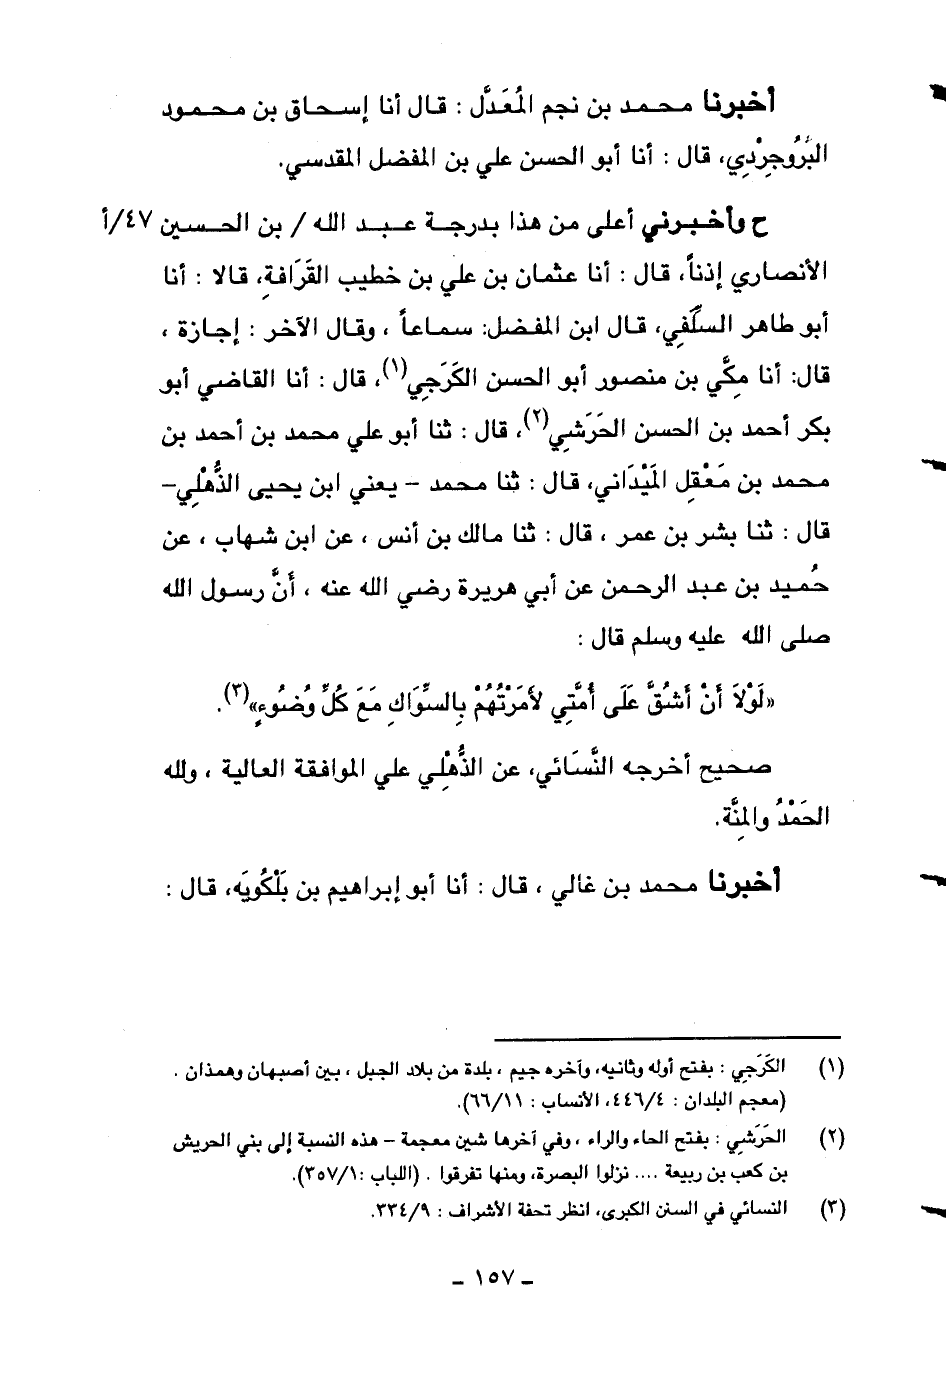 أخبرنا محمد بن نجم المُعَدَّل : قال أنا إسحاق بن محمود
البَرُوجِرْدِي، قال : أنا أبو الحسن علي بن المفضل المقدسي.
ح وأخبرني أعلى من هذا بدرجة عبد الله / بن الحسين ٤٧/أ
الأنصاري إذناً، قال : أنا عثمان بن علي بن خطيب القَرَافةِ، قالا : أنا
أبو طاهر السلَّفي، قال ابن المفضل: سماعاً ، وقال الآخر : إجازة ،
قال: أنا مكَّي بن منصور أبو الحسن الكَرَجِي(١)، قال : أنا القاضي أبو
بكر أحمد بن الحسن الحَرَشي(٢)، قال : ثنا أبو علي محمد بن أحمد بن
محمد بن مَعْقِل المَيْدَاني، قال : ثنا محمد – يعني ابن يحيى الذُّهْلِي–
قال : ثنا بشر بن عمر ، قال : ثنا مالك بن أنس ، عن ابن شهاب ، عن
حُميد بن عبد الرحمن عن أبي هريرة رضي الله عنه ، أنَّ رسول الله
صلى الله عليه وسلم قال :
«لَوْلاَ أَنْ أَشُقَّ عَلَى أُمَّتِي لأَمَرْتُهُمْ بِالسِّوَاكِ مَعَ كُلِّ وُضُوءٍ»(٣).
صحيح أخرجه النَّسَائي، عن الذُّهْلِي علي الموافقة العالية ، ولله
الحَمْدُ والمِنَّة.
أخبرنا محمد بن غالي ، قال : أنا أبو إبراهيم بن بَلْكُويَه، قال :
(١) الكَرَجي : بفتح أوله وثانيه، وآخره جيم ، بلدة من بلاد الجبل ، بين أصبهان وهمذان .
(معجم البلدان : ٤٤٦/٤، الأنساب : ٦٦/١١).
(٢) الحَرَشي : بفتح الحاء والراء ، وفي آخرها شين معجمة – هذه النسبة إلى بني الحريش
بن كعب بن ربيعة .... نزلوا البصرة، ومنها تفرقوا . (اللباب :٣٥٧/١).
(٣) النسائي في السنن الكبرى، انظر تحفة الأشراف : ٣٣٤/٩.
– ١٥٧ –